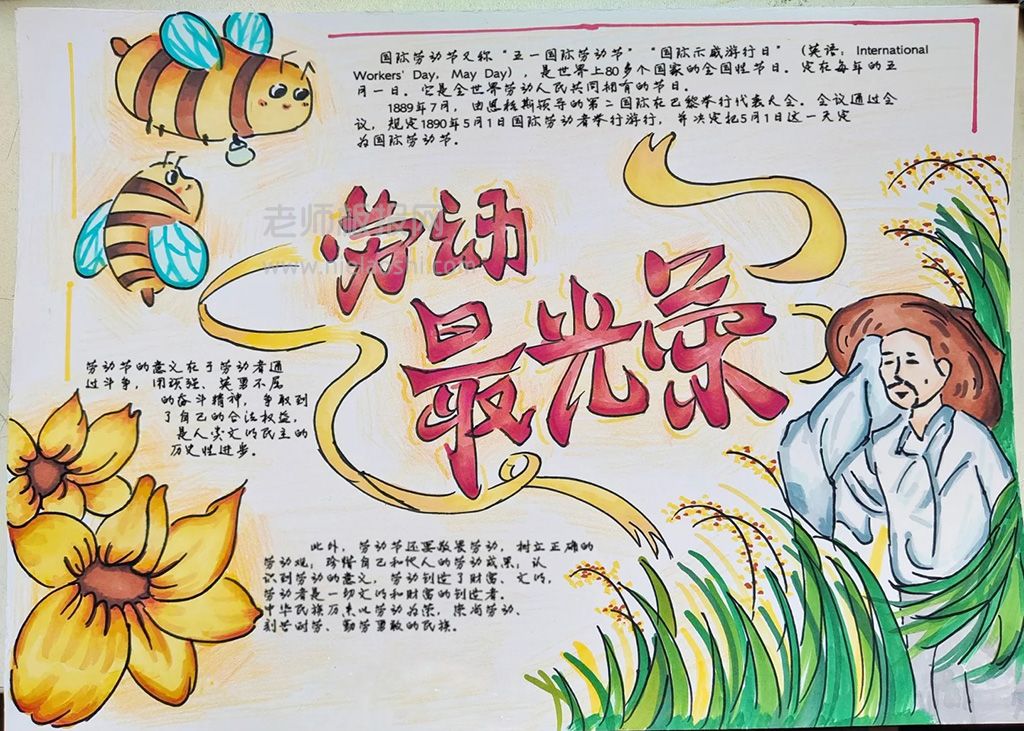 国际劳动节又称“五一国际劳动节”“国际示威游行日”（英语：International
Workers' Day，May Day），是世界上80多个国家的全国性节日。定在每年的五
月一日。它是全世界劳动人民共同拥有的节日。
1889年7月，由恩格斯领导的第二国际在巴黎举行代表大会。会议通过会
议，规定1890年5月1日国际劳动者举行游行，并决定把5月1日这一天定
为国际劳动节。
老师板报网
劳动
最光荣
劳动节的意义在于劳动者通
过斗争，用顽强、英勇不屈
的奋斗精神，争取到
了自己的合法权益，
是人类文明民主的
历史性进步。
此外，劳动节还要敬畏劳动，树立正确的
劳动观，珍惜自己和他人的劳动成果，认
识到劳动的意义，劳动创造了财富、文明，
劳动者是一切文明和财富的创造者。
中华民族历来以劳动为荣，崇尚劳动、
刻苦耐劳、勤劳勇敢的民族。